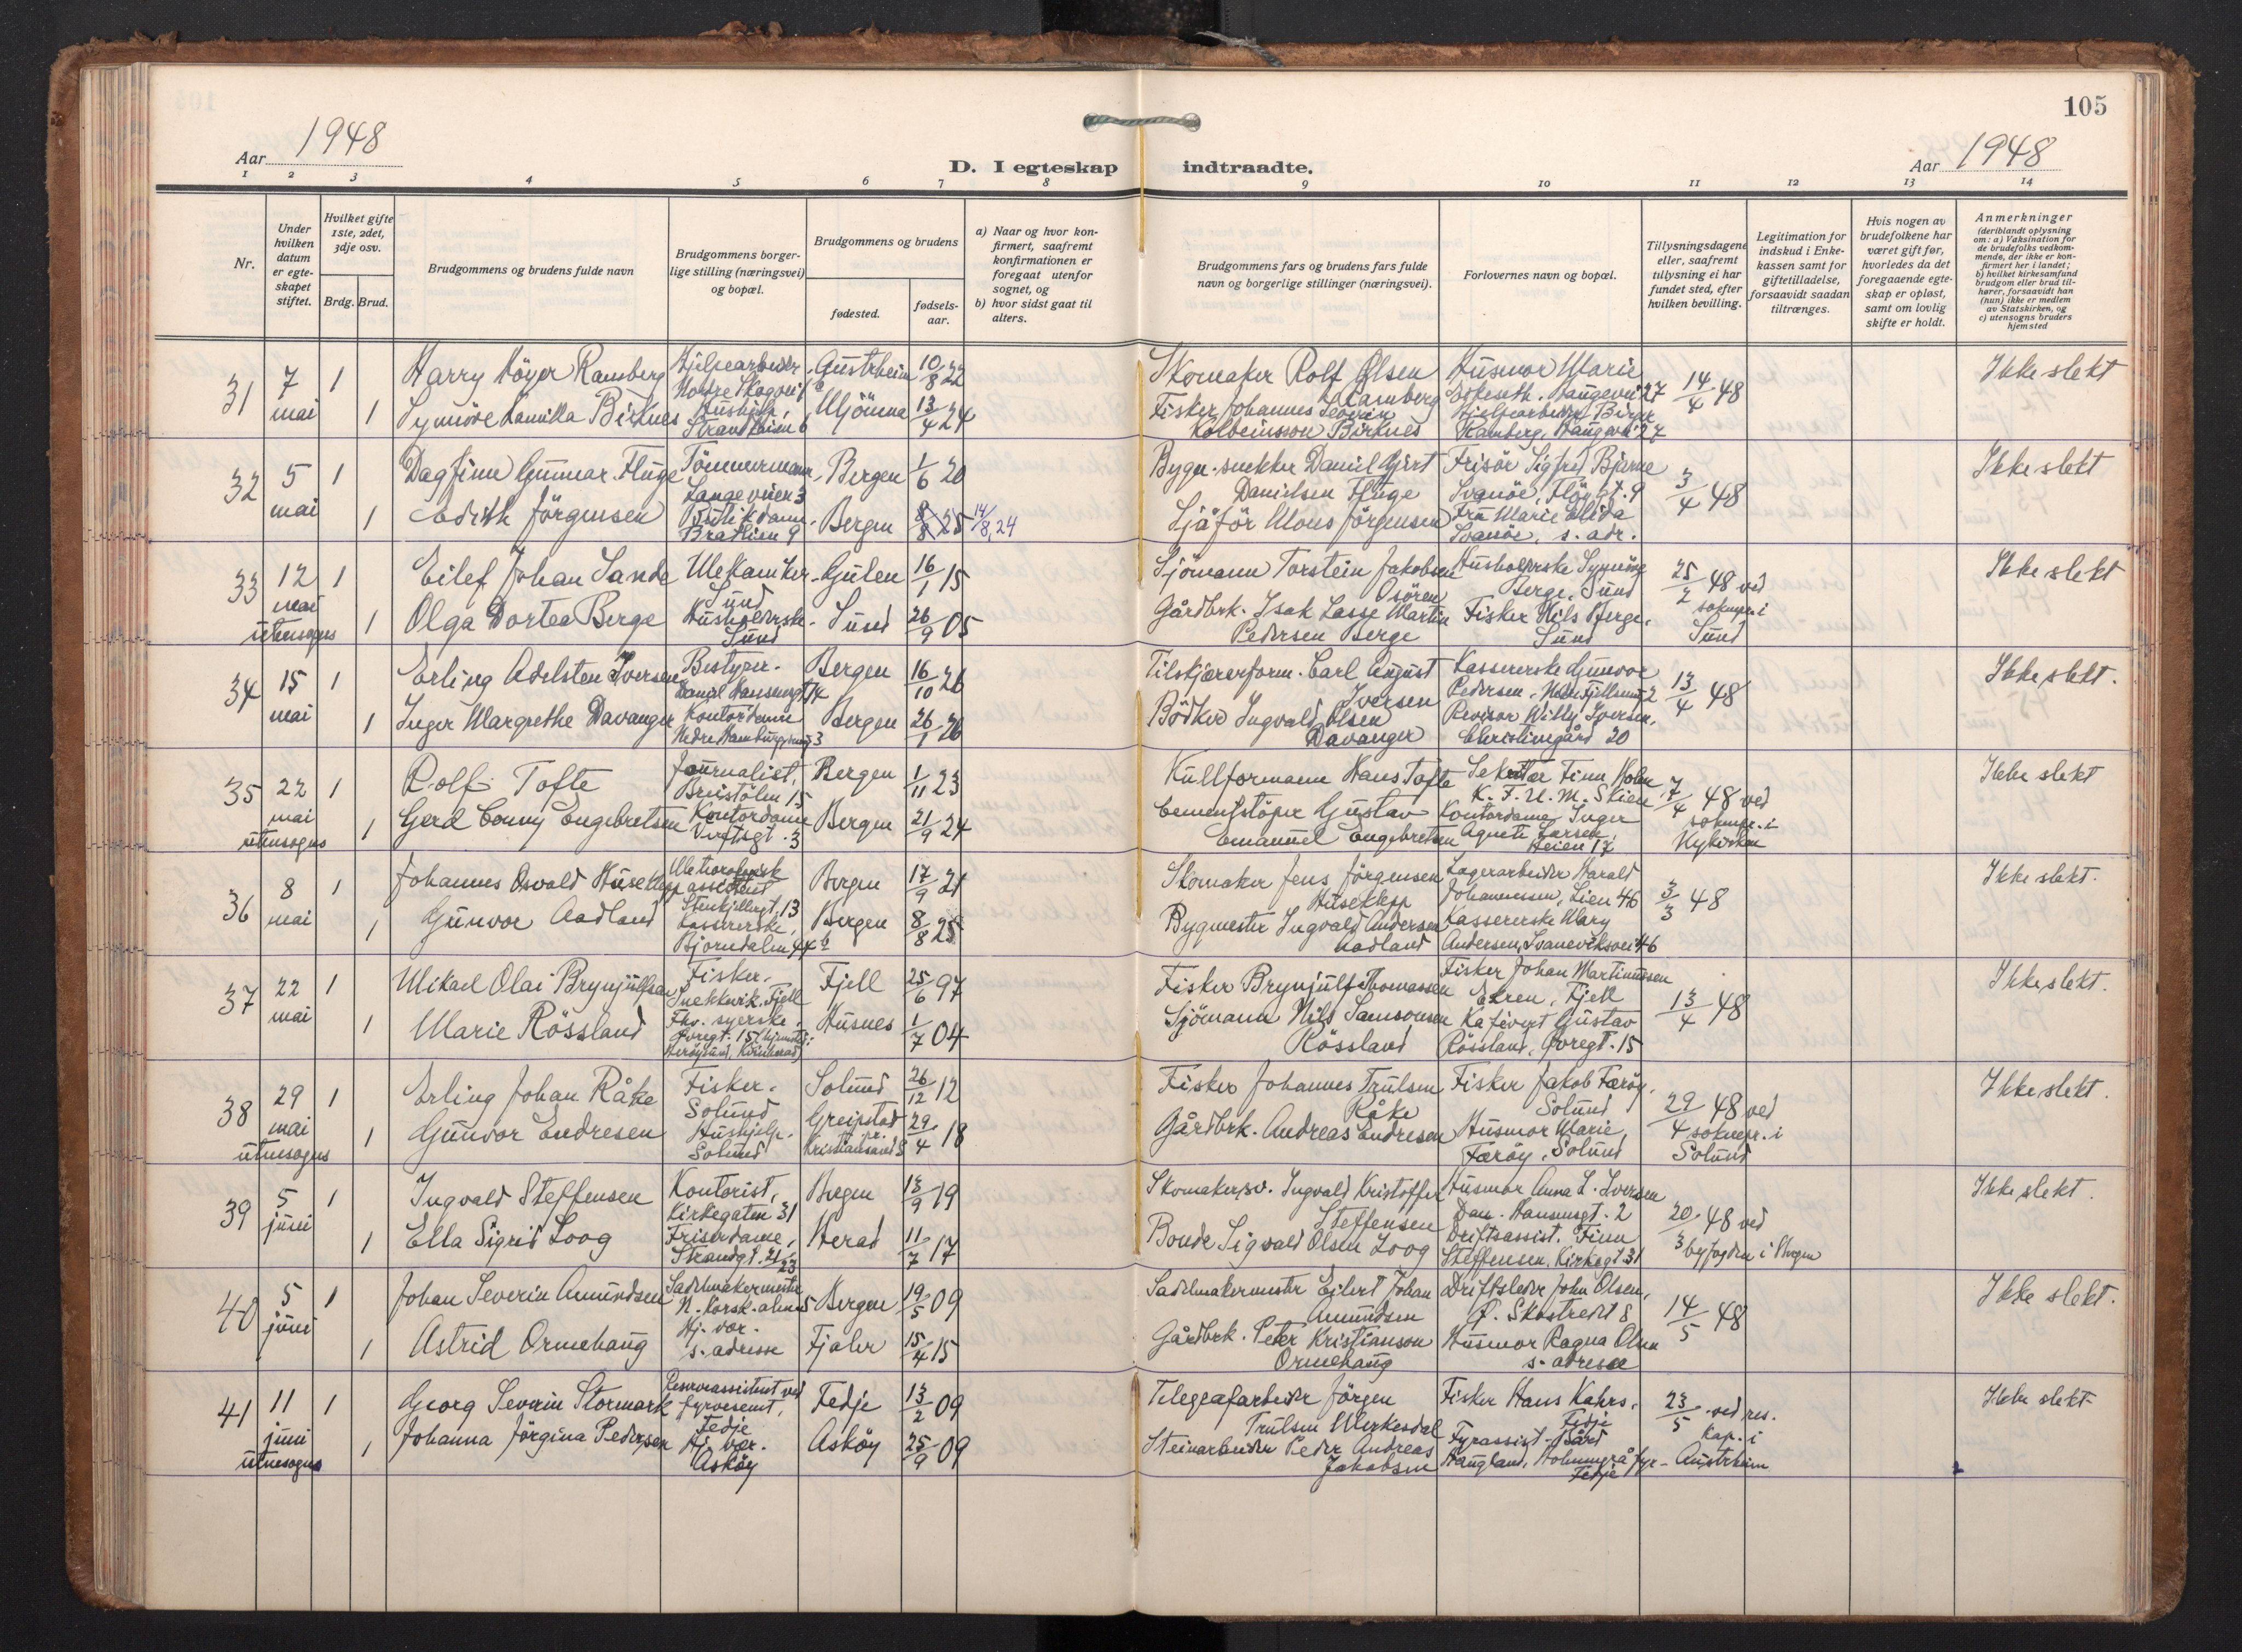 105
Aar 1948
D. I egteskap indtraadte.
Aar 1948
1 2 3 4 5 6 7 8 9 10 11 12 13 14
Nr.
Under hvilken datum er egteskapet stiftet.
Hvilket gifte 1ste, 2det, 3dje osv.
Brdg. Brud.
Brudgommens og brudens fulde navn
Brudgommens borgerlige stilling (næringsvei) og bopæl.
Brudgommens og brudens
fødested.
fødselsaar.
a) Naar og hvor konfirmert, saafremt konfirmationen er foregaat utenfor sognet, og
b) hvor sidst gaat til alters.
Brudgommens fars og brudens fars fulde navn og borgerlige stillinger (næringsvei).
Forlovernes navn og bopæl.
Tillysningsdagene eller, saafremt tillysning ei har fundet sted, efter hvilken bevilling.
Legitimation for indskud i Enkekassen samt for giftetilladelse, forsaavidt saadan tiltrænges.
Hvis nogen av brudefolkene har været gift før, hvorledes da det foregaaende egteskap er opløst, samt om lovlig skifte er holdt.
Anmerkninger (deriblandt oplysning om: a) Vaksination for de brudefolks vedkommende, der ikke er konfirmert her i landet; b) hvilket kirkesamfund brudgom eller brud tilhører, forsaavidt han (hun) ikke er medlem av Statskirken, og c) utensogns bruders hjemsted
31 7 mai 1 Harry Höyer Ramberg Hjelpearbeider Austrheim 10/8 22 Skomaker Rolf Olsen Ramberg Husmor Marie Haugevei 27 14/4 48 Ikke slekt
1 Synnöve Kamilla Birknes Hushjelp, Strandkaien 6 Mjömna 13/4 24 Fisker Johannes Severin Kolbeinsson Birknes Hjelpearbeider Birger Ramberg, Haugevei 27
32 5 mai 1 Dagfinn Gunnar Fluge Tömmermann, Langevien 3 Bergen 1/6 20 Bygn.snekker Daniel Gjert Danielsen Fluge Frisör Sigfred Bjarne Svanöe, Flöygt. 9 3/4 48 Ikke slekt
1 Edith Jörgensen Butikdame, Bradlien 9 Bergen 8/8 25 14/8,24 Sjåför Mons Jörgensen Fru Marie Elida Svanöe, s. adr.
33 12 mai 1 Eilef Johan Sande Mekaniker Sund Gulen 16/1 15 Sjömann Torstein Jakobsen Osören Husholderske Synnöve Berge, Sund 25/2 48 ved sokepr. i Sund Ikke slekt
utensogns 1 Olga Dortea Berge Husholderske Sund Sund 26/9 05 Gårdbrk. Isak Lasse Martin Pedersen Berge Fisker Nils Berge, Sund
34 15 mai 1 Erling Adelsten Iversen Bestyrer. Daniel Hansensgt. 14 Bergen 16/10 26 Tilskjærerform. Carl August Iversen Kassererske Gunvor Pedersen, 13/4 48 Ikke slekt.
1 Inger Margrethe Davanger Kontordame Nedre Hamburgersmug 3 Bergen 26/1 26 Bödker Ingvald Olsen Davanger Revisor Willy Iversen, Christinegård 20
35 22 mai 1 Rolf Tofte Journalist, Breistölen 15 Bergen 1/11 23 Kullformann Hans Tofte Sekretær Finn Holm K.F.U.M. Skien 7/4 48 ved sokepr. i Nykirken Ikke slekt
utensogns 1 Gerd Conny Engebretsen Kontordame Verftsgt. 3 Bergen 21/9 24 Cementstöper Gustav Emanuel Engebretsen Kontordame Inger Agnete Larsen, Heien 17
36 8 mai 1 Johannes Osvald Husekleppp assistent Stenkjellergt. 13 Bergen 17/9 21 Skomaker Jens Jörgensen Huseklepp Lagerarbeider Harald Johannessen, Lien 46 3/3 48 Ikke slekt.
1 Gunvor Aadland Kassererske, Björndalen 44 b Bergen 8/8 25 Bygmester Ingvald Andersen Aadland Kassererske Mary Andersen, Svaneviksvei 46
37 22 mai 1 Mikael Olai Brynjulfsen Fisker. Snekkevik. Fjell Fjell 25/6 97 Fisker Brynjulf Thomassen Fisker Johan Martinussen Ekren, Fjell 13/4 48 Ikke slekt.
1 Marie Rössland Fhv. syerske, Övregt. 15 (hjemsted: Heröysund, Kvinnherad) Husnes 1/7 04 Sjömann Nils Samsonsen Rössland Kafévert Gustav Rössland, Övregt. 15
38 29 mai 1 Erling Johan Råke Fisker. Solund Solund 26/12 12 Fisker Johannes Trulsen Råke Fisker Jakob Færöy, Solund 29/4 48 ved sokepr. i Solund Ikke slekt.
utensogns 1 Gunvor Endresen Hushjelp. Solund Greipstad pr. Kristiansand S 29/4 18 Gårdbrk. Andreas Endresen Husmor Marie Færöy, Solund
39 5 juni 1 Ingvald Steffensen Kontorist, Kirkegaten 31 Bergen 13/9 19 Skomakersv. Ingvald Kristoffer Steffensen Husmor Anna L. Iversen Dan. Hansensgt. 2 20/3 48 ved byfogden i Bergen Ikke slekt.
1 Ella Sigrid Loog Friserdame, Strandgt. 21/23 Herad 11/7 17 Bonde Sigvald Olsen Loog Driftsassist. Finn Steffensen, Kirkegt 31
40 5 juni 1 Johan Severin Amundsen Sadelmakermester N. Korsk.alm. 5 Bergen 19/5 09 Sadelmakermester Eilert Johan Amundsen Driftsleder John Olsen, Ö. Skostredet 8 14/5 48 Ikke slekt.
1 Astrid Ormehaug Hj. vær. s. adresse Fjaler 15/4 15 Gårdbrk. Peter Kristianson Ormehaug Husmor Ragna Olsen s. adresse
41 11 juni 1 Georg Severin Stormark Reserveassistent ved fyrvesenet, Fedje Fedje 13/2 09 Telegrafarbeider Jörgen Trulsen Myrkesdal Fisker Hans Kahrs, Fedje 23/5 ved res. kap. i Austrheim Ikke slekt.
utensogns 1 Johanna Jörgina Pedersen Hj. vær. Asköy Asköy 25/9 09 Steinarbeider Peder Andreas Jakobsen Fyrassist. Bård Haugland, Holmengrå fyr Fedje